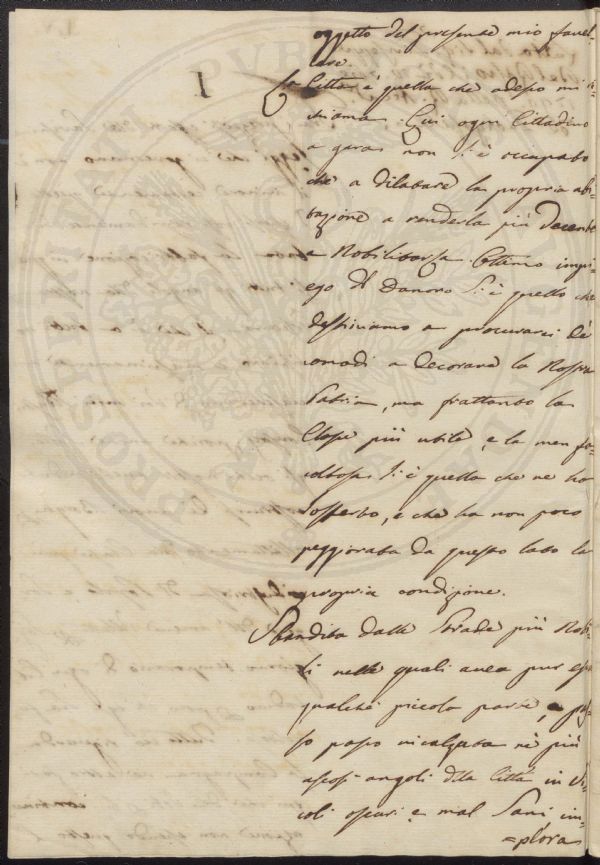 oggetto del presente mio favel-
lare
I
La Città è quella che adesso mi ri-
chiama. Qui ogni Cittadino
a gara non si è occupato
che a dilatare la propria abi-
tazione a renderla più decente
e Nobilitarla. Ottimo impi-
ego di Danoro si è quello che
destiniamo a procurarci de'
comodi a decorare la Nostra
Patria, ma frattanto la
Classe più utile, e la men fa-
coltosa si è quella che ne ha
sofferto, e che ha non poco
peggiorata da questo lato la
propria condizione.
Sbandita dalle Strade più Nobi-
li nelle quali avea pur essa
qualche piccola parte, a pas-
so passo incalzata ne' più
ascosi angoli della Città in Vi-
coli oscuri e mal Sani im-
=plora